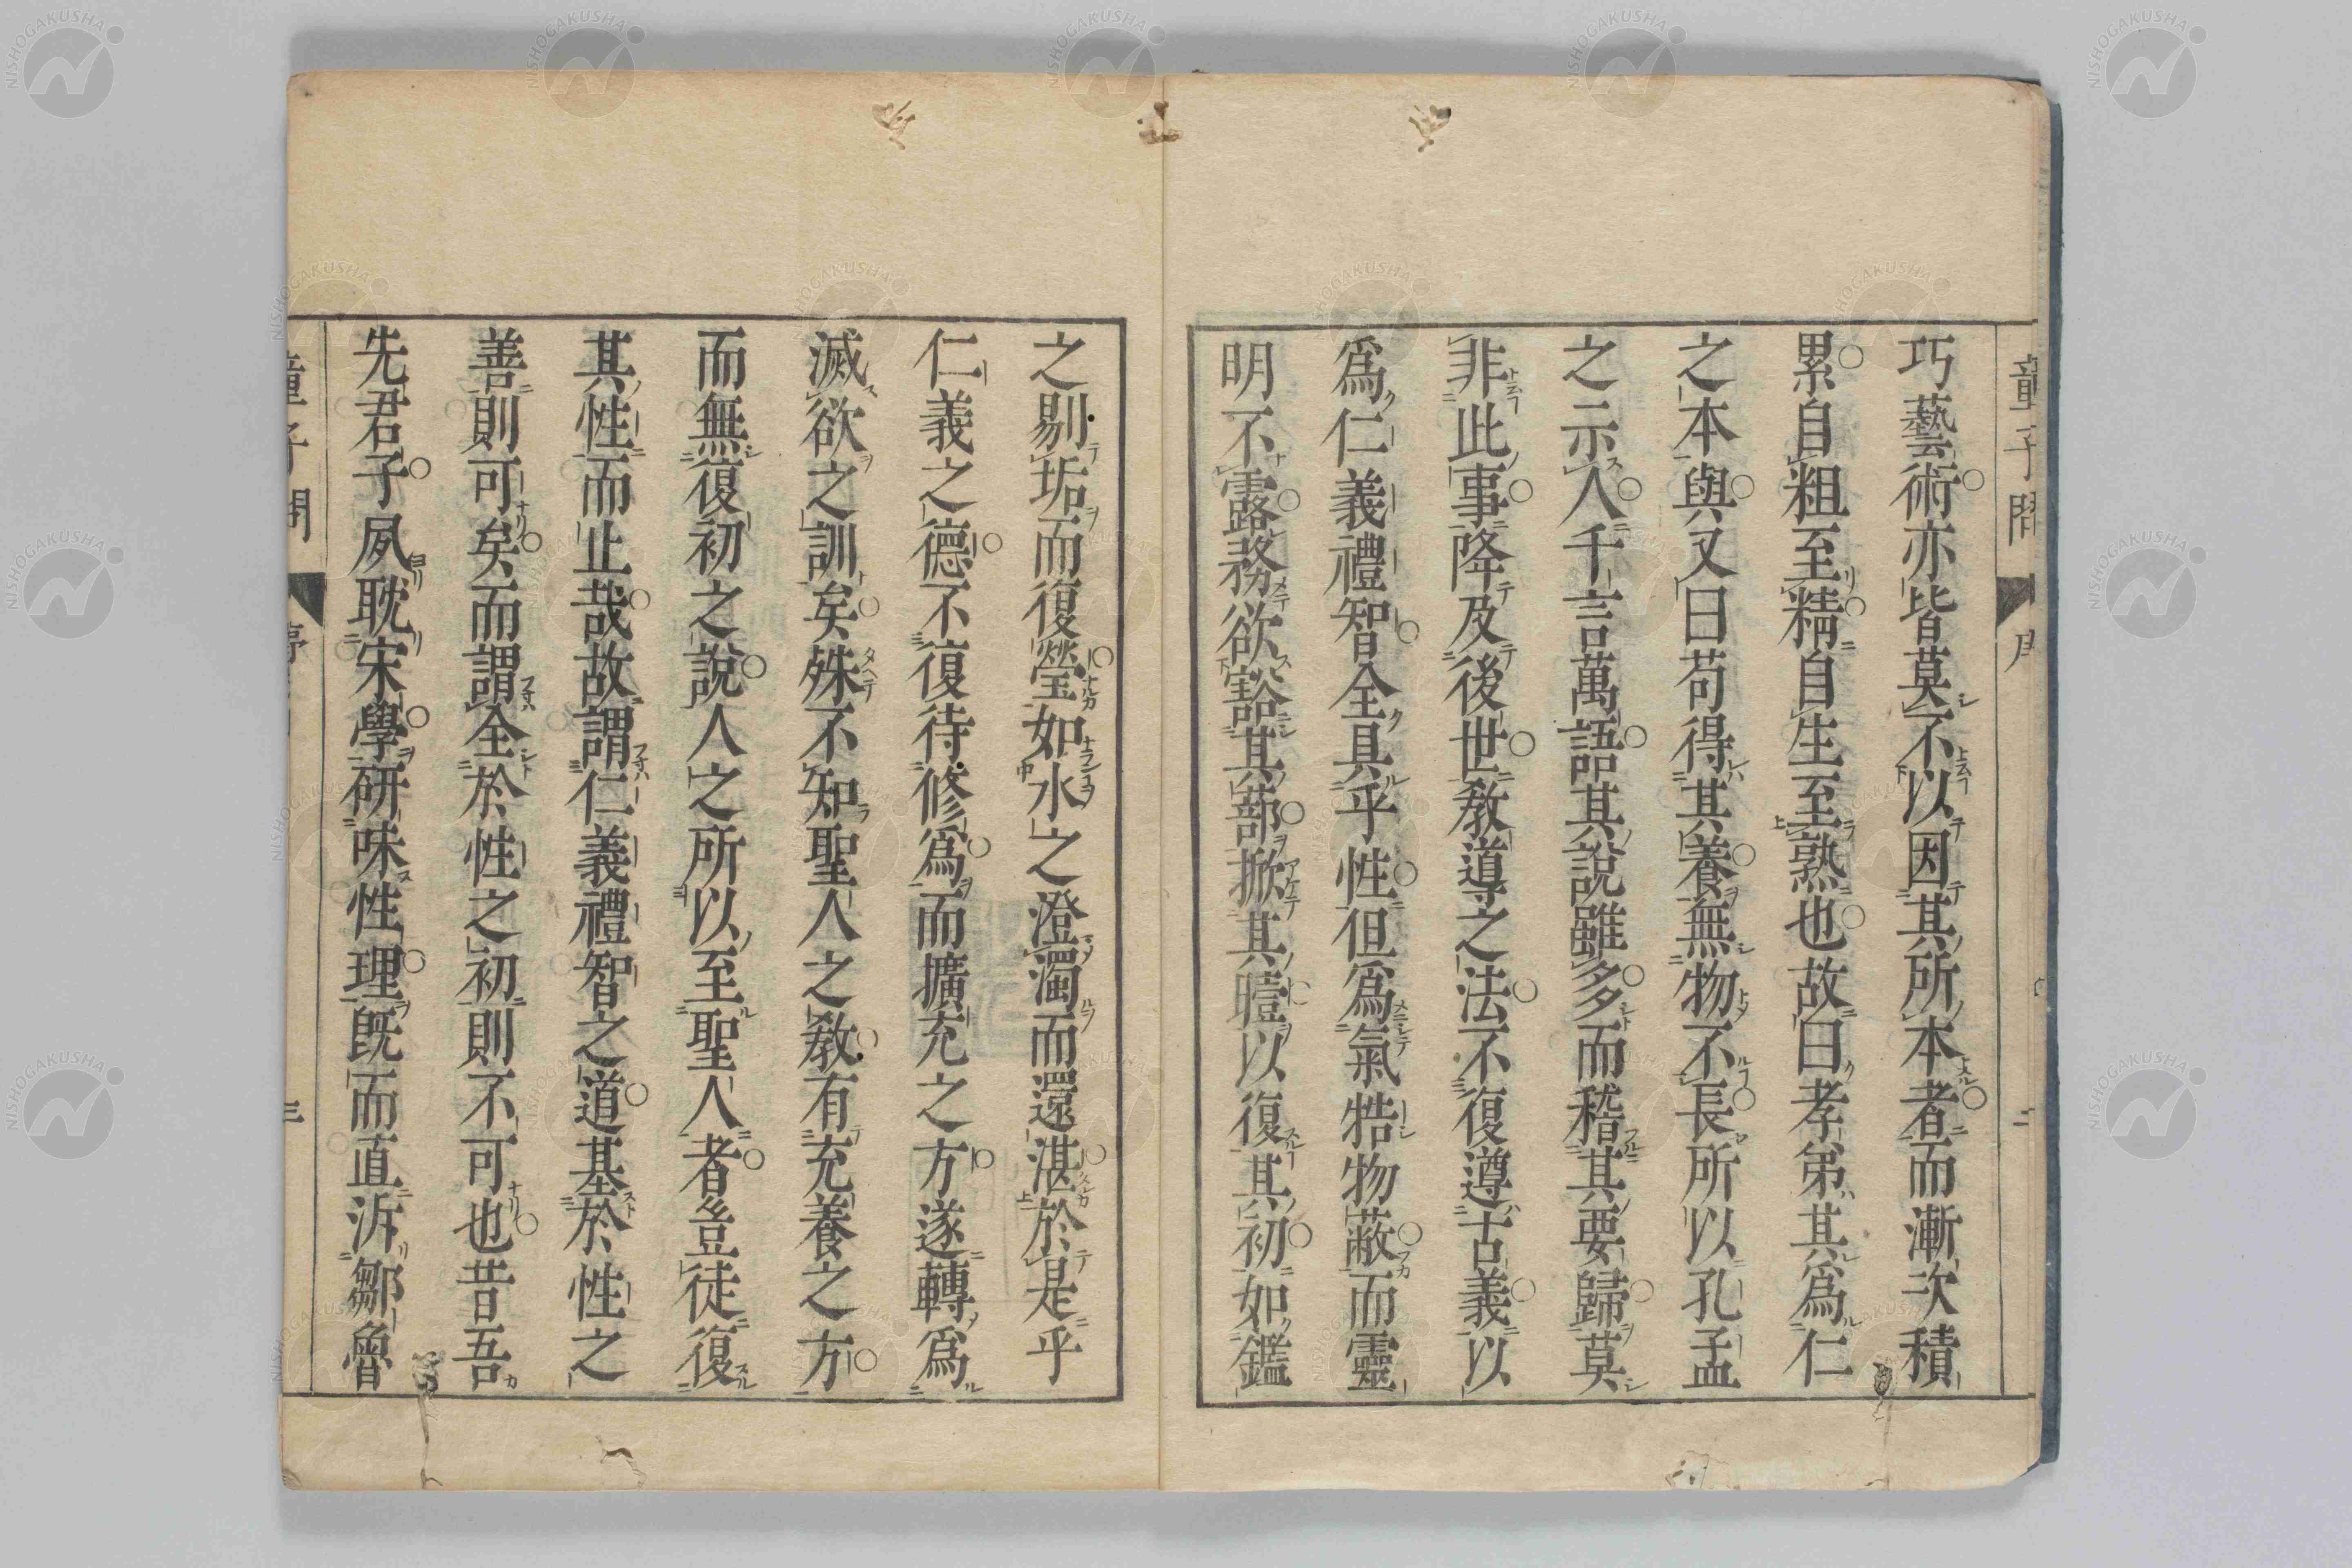 巧藝術亦皆莫不以因其所本者而漸次積
累自粗至精自生至熟也故曰孝弟其爲仁
之本與又曰苟得其養無物不長所以孔孟
之示人千言萬語其說雖多而稽其要歸莫
非此事降及後世教導之法不復遵古義以
爲仁義禮智全具乎性但爲氣牿物蔽而靈
明不露務欲豁其蔀掀其曀以復其初如鑑
之剔垢而復瑩如水之澄濁而還湛於是乎
仁義之德不復待修爲而擴充之方遂轉爲
滅欲之訓矣殊不知聖人之教有充養之方
而無復初之說人之所以至聖人者豈徒復
其性而止哉故謂仁義禮智之道基於性之
善則可矣而謂全於性之初則不可也昔吾
先君子夙耽宋學研味性理既而直泝鄒魯
童子問
三
NISHOGAKUSHA